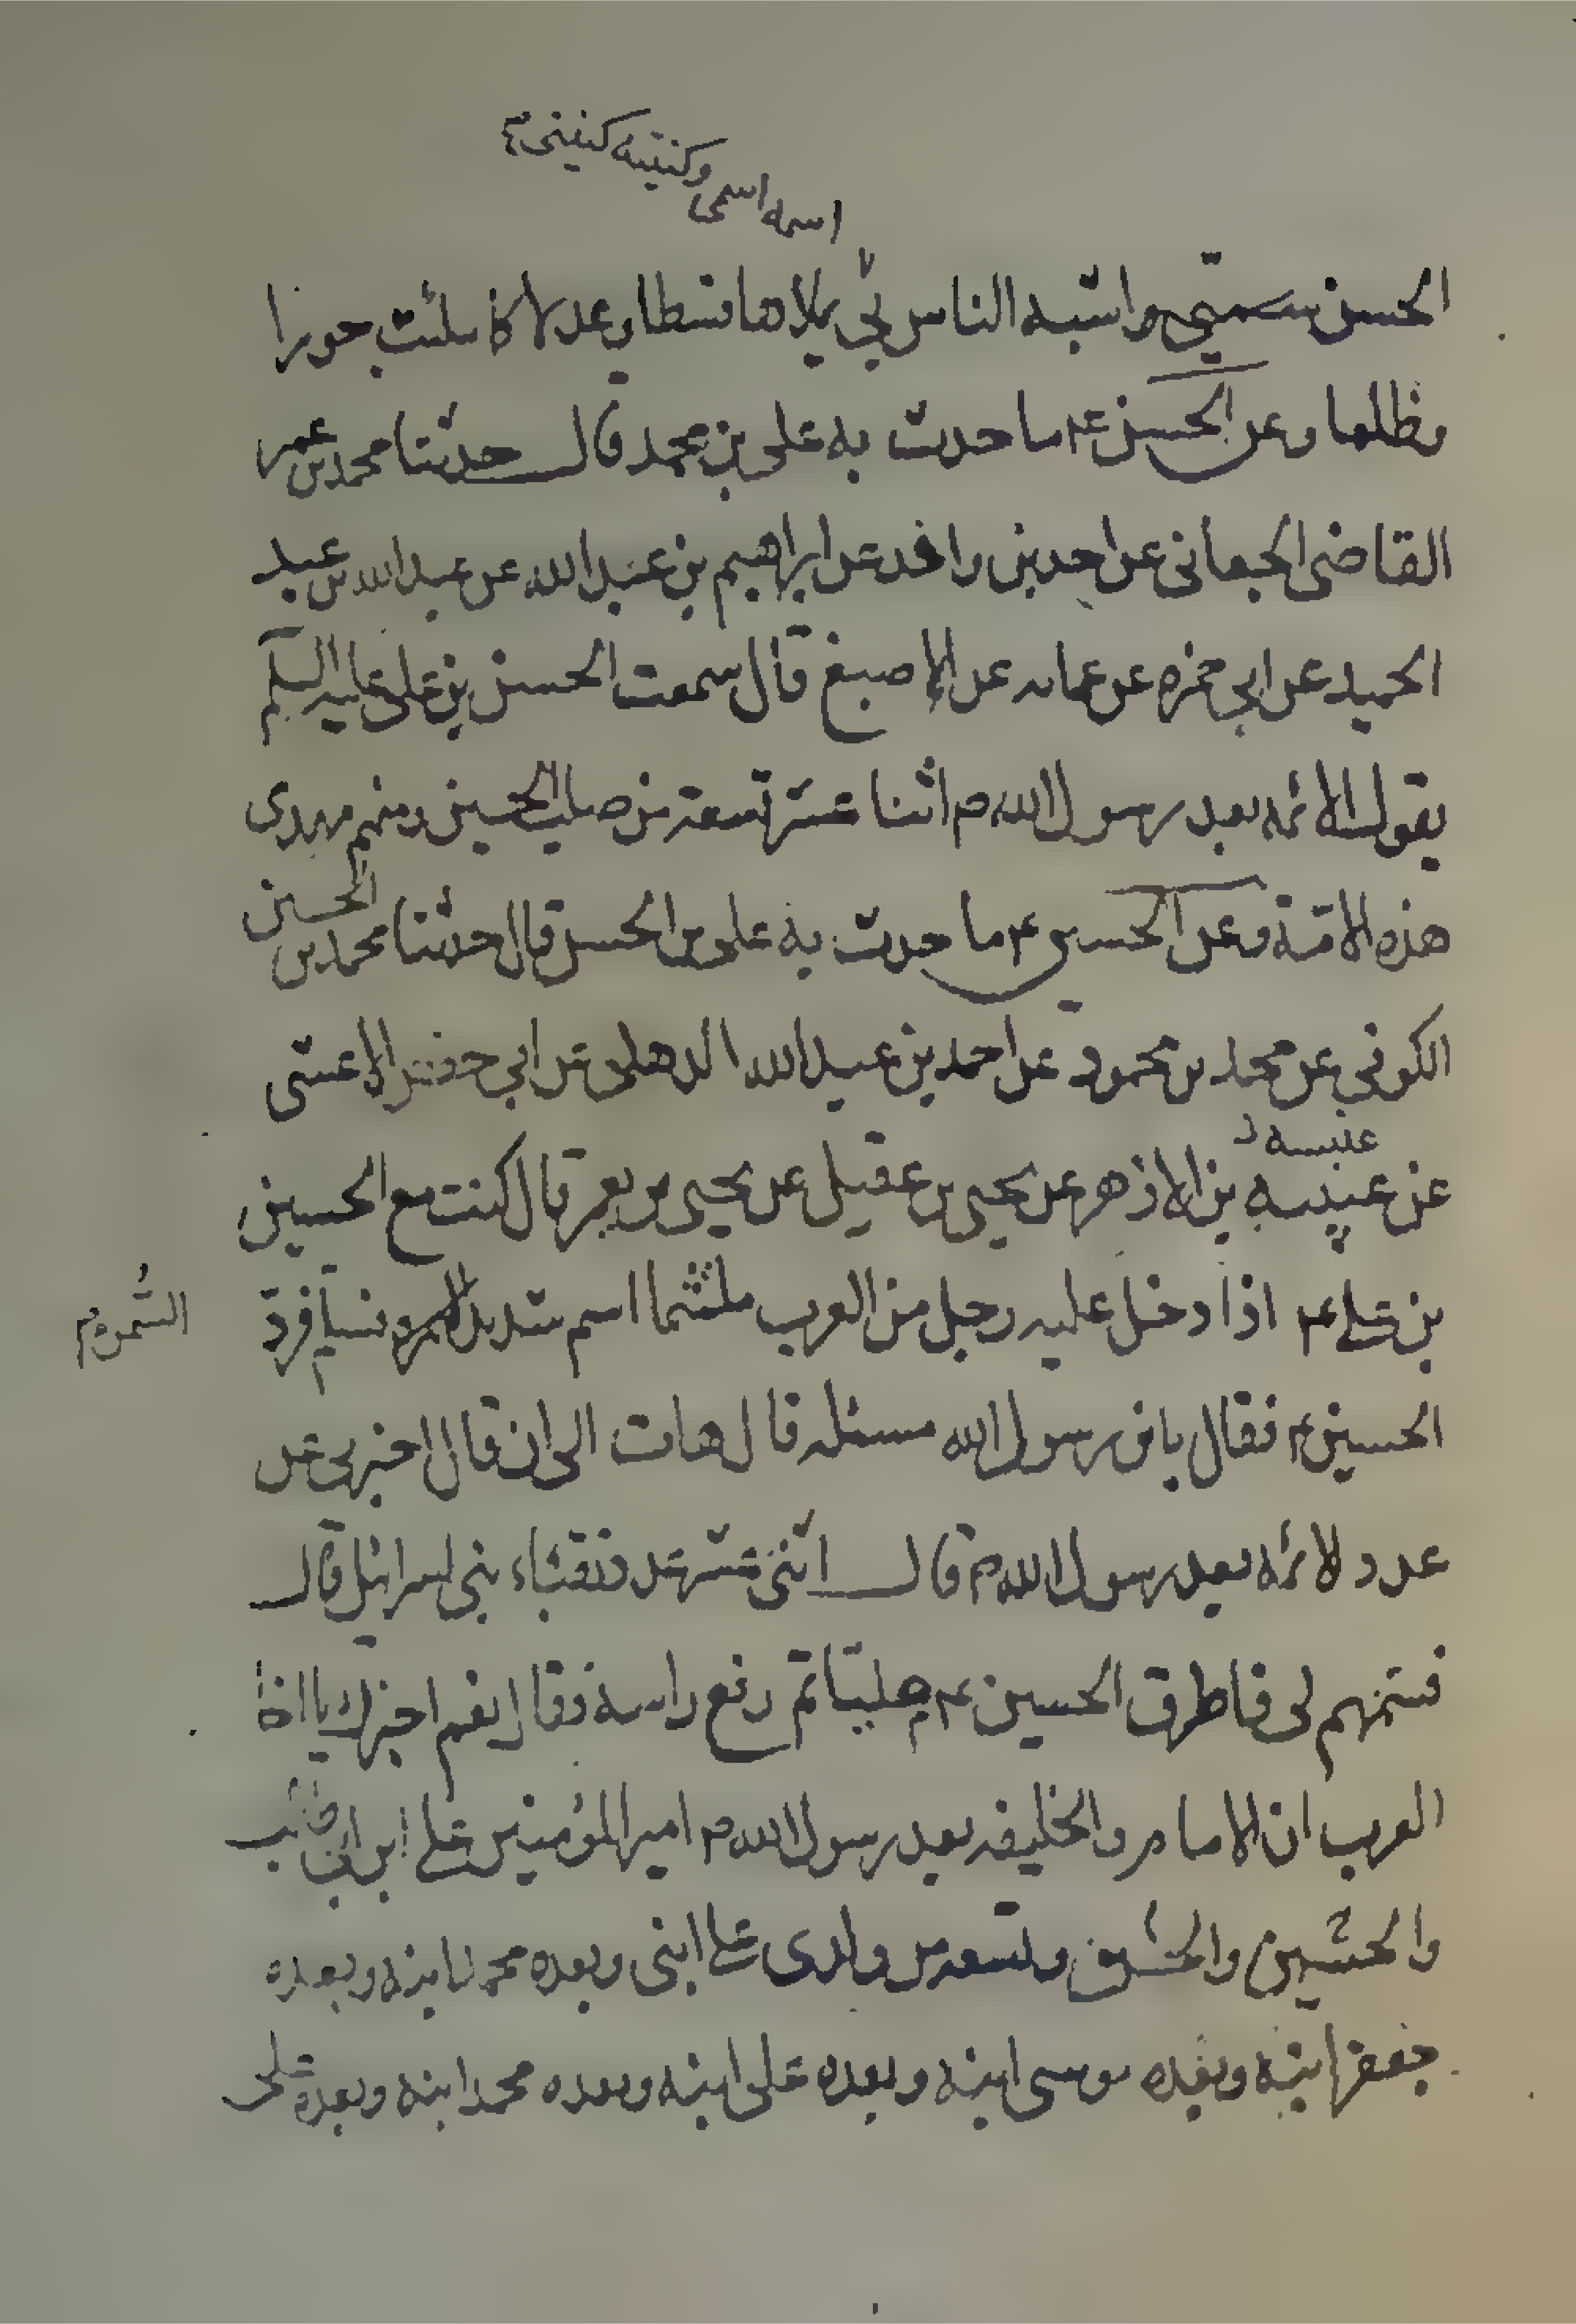 اسمه اسمى وكنيته كنيتى
الحسن سميّى واشبه الناس بى يملاها قسطا وعدلا كما ملئت جورا
وظلما وعن الحسن ع ما حدث به على بن محمد قال حدثنا محمد بن عمر
القاضى الجعانى عن احمد بن وافد عن ابراهيم بن عبد الله عن عبد الله بن عبد
الحميد عن ابى حمزه عن عبايه عن الاصبغ قال سمعت الحسن بن على عليه السلم
يقول الائمه بعد رسول الله ص اثنا عشر تسعة من صلب الحسين ومنهم مهدى
هذه الامّة وعن الحسين ع ما حدث به على بن الحسن قال حدثنا محمد بن الحسين
الكوفى عن محمد بن محمود عن احمد بن عبد الله الذهلى عن ابى حفص الاعشى
عنبسه
عن عنبسه بن الاذهر عن يحيى بن عقيل عن يحيى بن يعمر قال كنت مع الحسين
بن على ع اذا دخل عليه رجل من العرب ملثما اسم شديد السمره فسلم فردّ
السُّمره
الحسين ع فقال يابن رسول الله مسئله قال هات الى ان قال اخبرنى عن
عدد الائمه بعد رسول الله ص قال اثنى عشر عدد نقباء بنى اسرائيل قال
فسمّهم لى فاطرق الحسين ع مليّا ثم رفع راسه فقال نعم اخبرك يا اخا
العرب ان الامام والخليفه بعد رسول الله ص امير المؤمنين على ابن ابى طالب
والحسن والحسين وتسعه من ولدى على ابنى وبعده محمد ابنه وبعده
جعفر ابنه وبعده موسى ابنه وبعده على ابنه وبعده محمد ابنه وبعده على